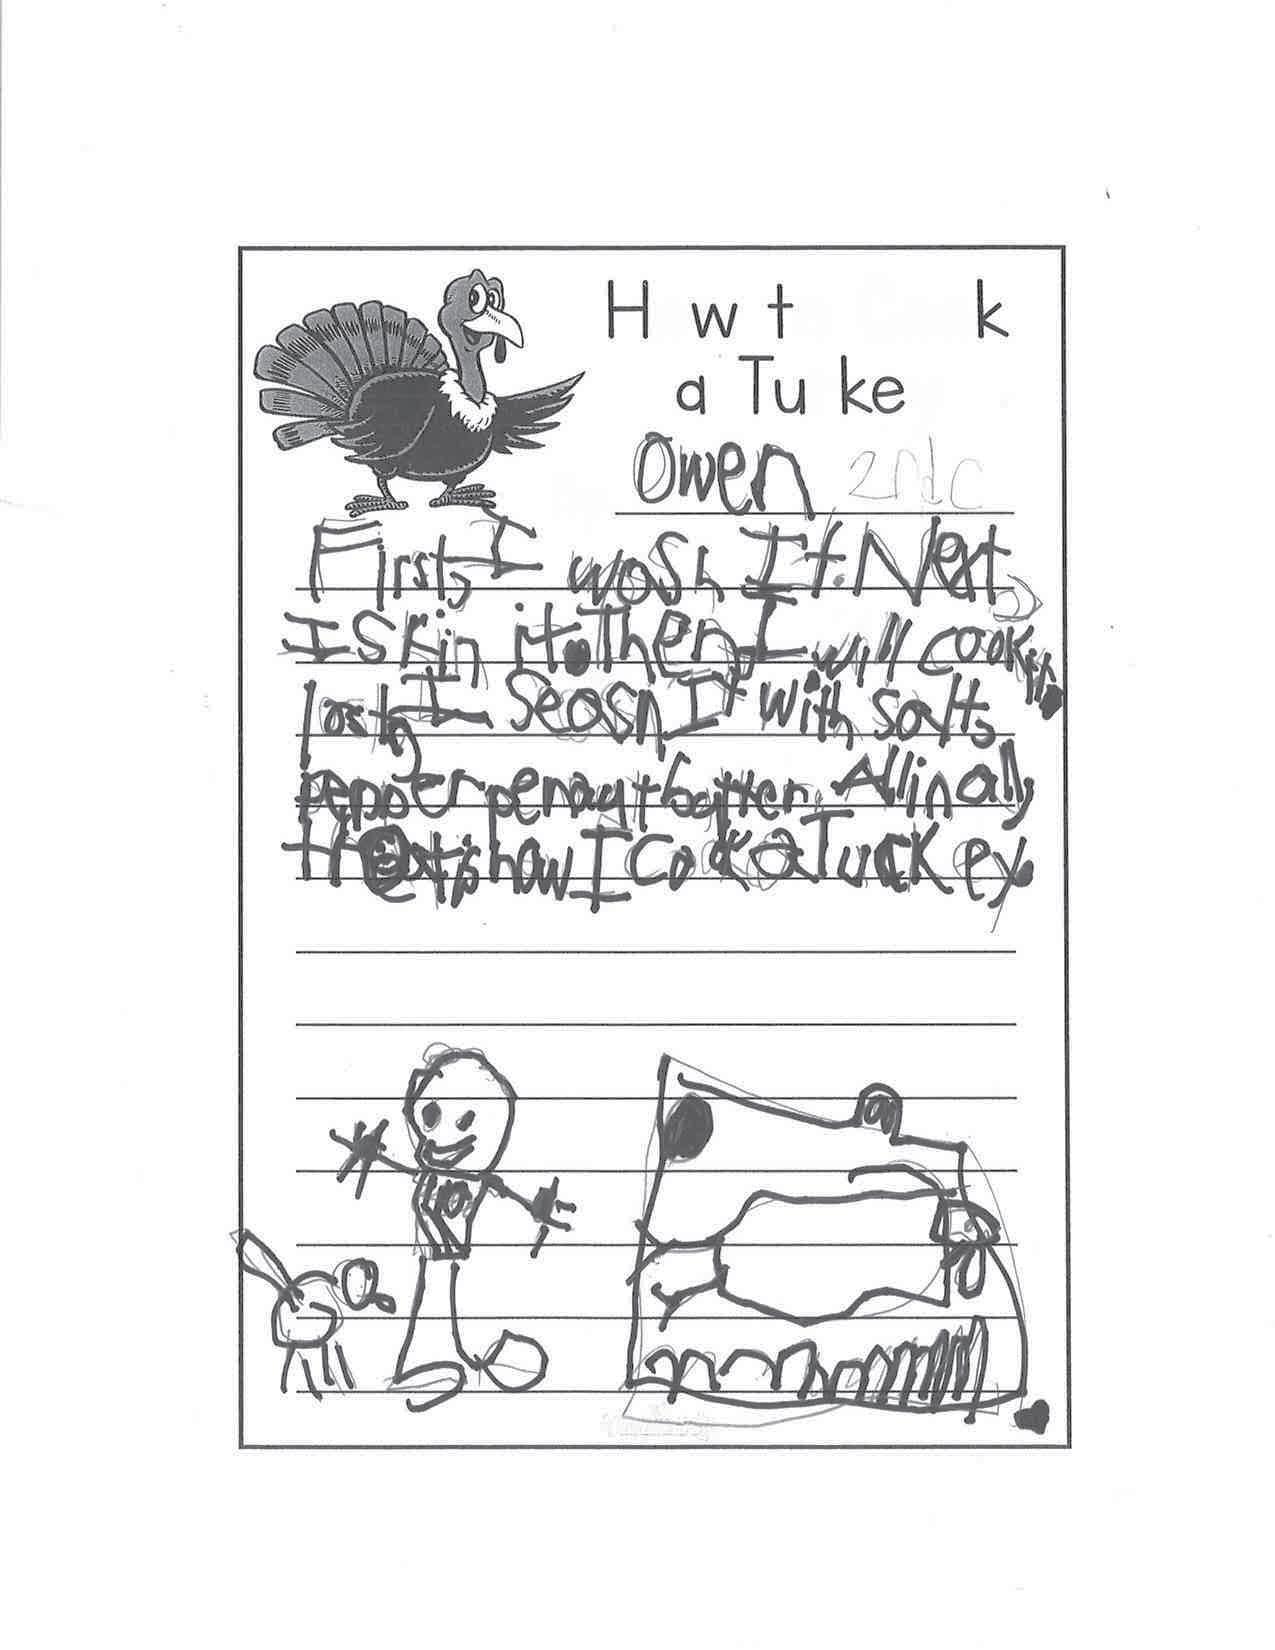 H w t k
a Tu ke
Owen 2nd C
First, I wash It. Next,
I skin it. Then, I will cook it.
lastly I Seasn It with salt,
pepper penaut batter. All in ally
that's how I Cook a Tuckey.